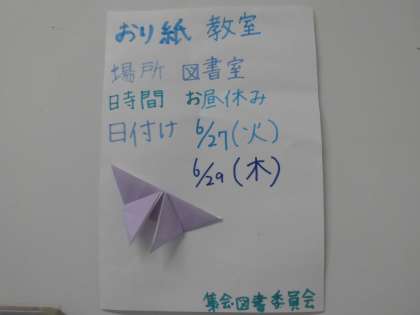 おり紙 教室
場所 図書室
時間 お昼休み
日付け 6/27(火)
6/29(木)
集会・図書委員会